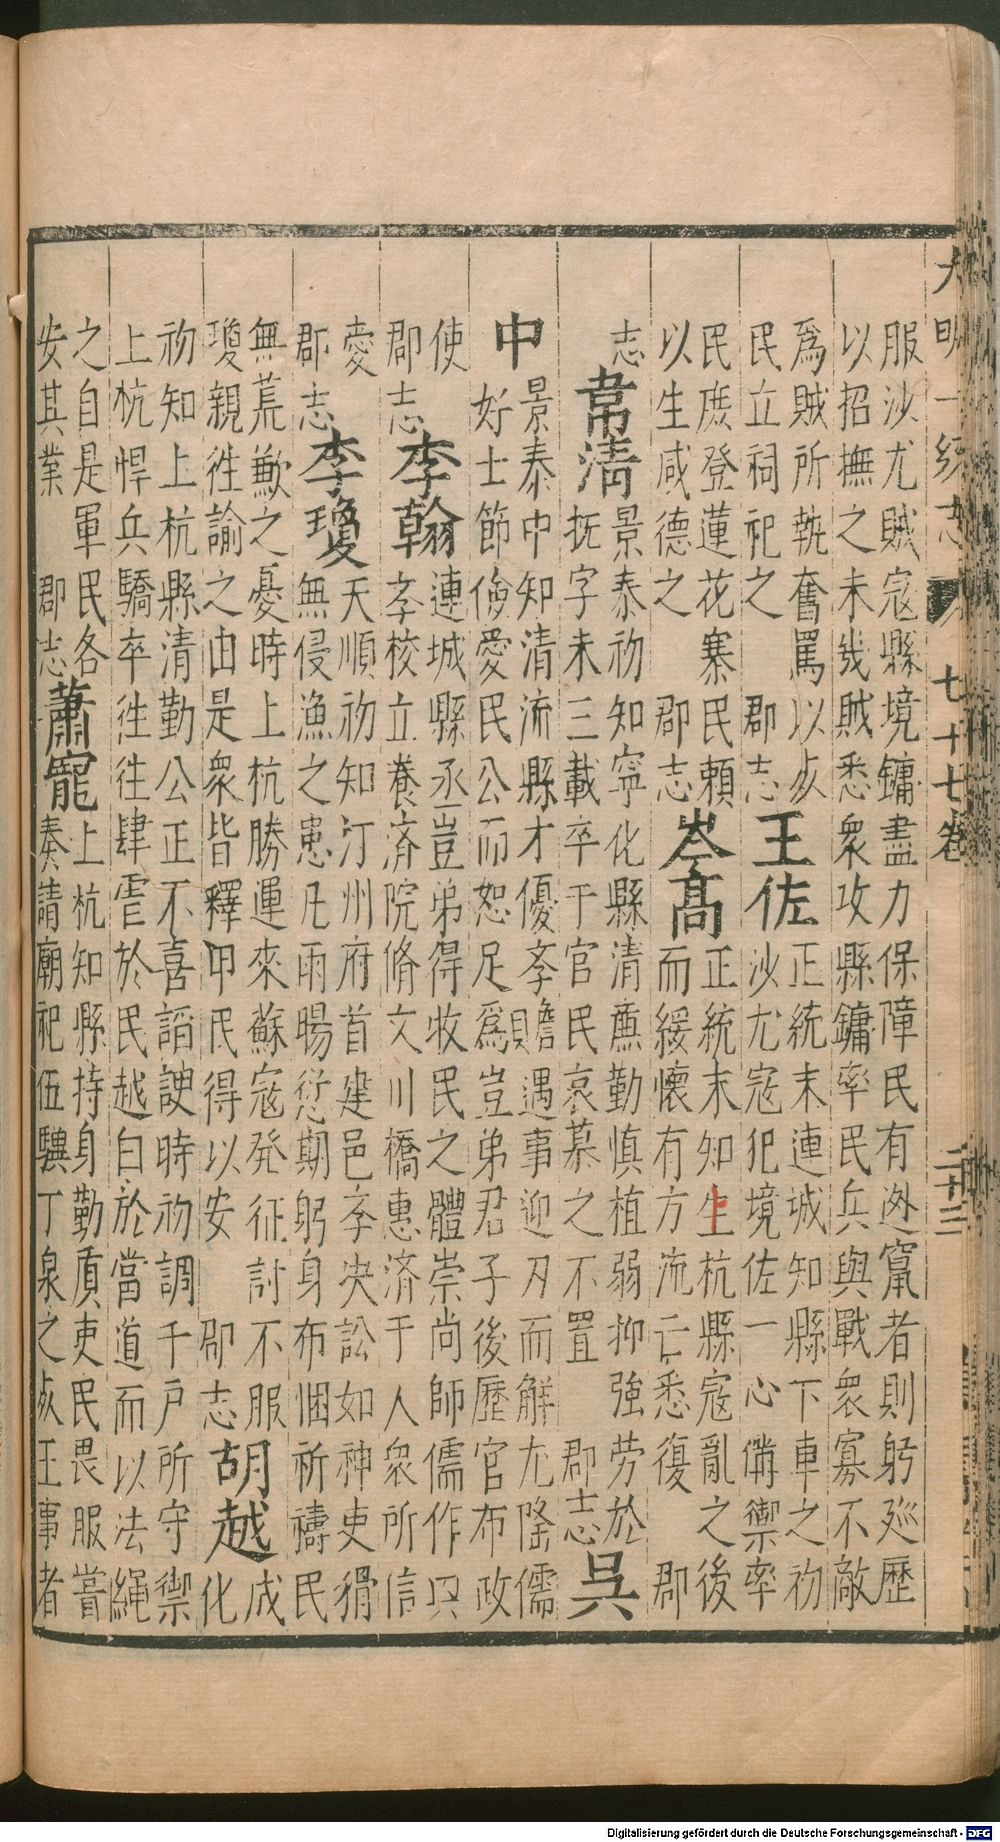 大明一統志 七十七卷 二十三
服沙尤賊寇縣境鏞盡力保障民有迯竄者則躬廵歷
以招撫之未幾賊悉衆攻縣鏞率民兵與戰衆寡不敵
爲賊所執奮罵以死 正統末連城知縣下車之初
民立祠祀之 郡志 王佐 沙尤寇犯境佐一心備禦率
民庶登蓮花寨民賴 正統末知上杭縣寇亂之後
以生咸德之 郡志 岑高 而緩懷有方流亡悉復 郡
志 韋清 景泰初知寧化縣清廉勤慎植弱抑強勞於
抚字未三載卒于官民哀慕之不置 郡志 吳
中 景泰中知清流縣才優孝贍遇事迎刃而解尤隆儒
好士節儉愛民公而恕足爲豈弟君子後歷官布政
使 連城縣丞豈弟得收民之體崇尚師儒作只
郡志 李翰 孝校立養済院脩文川橋惠済于人衆所信
愛 天順初知汀州府首建邑孝决訟如神吏猾
郡志 李瓊 無侵漁之患凡雨暘愆期躬身布悃祈禱民
無荒歉之憂時上杭勝運來蘇寇発征討不服 成
瓊親徃諭之由是衆皆釋甲民得以安 郡志 胡越 化
初知上杭縣清勤公正不喜謟諛時初調千戶所守禦
上杭悍兵驕卒徃徃肆雪於民越白於當道而以法繩
之自是軍民各 上杭知縣持身勤質吏民畏服嘗
安其業 郡志 蕭寵 奏請廟祀伍驥丁泉之死王事者
Digitalisierung gefördert durch die Deutsche Forschungsgemeinschaft - DFG